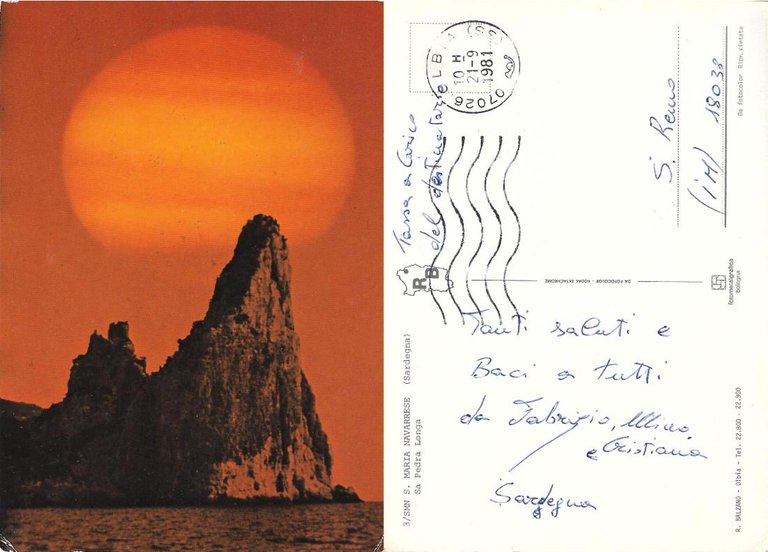 OLBIA (SS)
10 H
21-9
1981
07026
Tassa a Carico
del destinatario
S. Remo
(IM) 18038
Da fotocolor Ripr. vietata
RB
DA FOTOCOLOR - KODAK EKTACHROME
fotometalgrafica
bologna
3/SMN S. MARIA NAVARRESE (Sardegna)
Sa Pedra Longa
Tanti saluti e
Baci a tutti
da Fabrizio,
e Cristiana
Sardegna
R. BALZANO - Olbia - Tel. 22.800 - 22.900